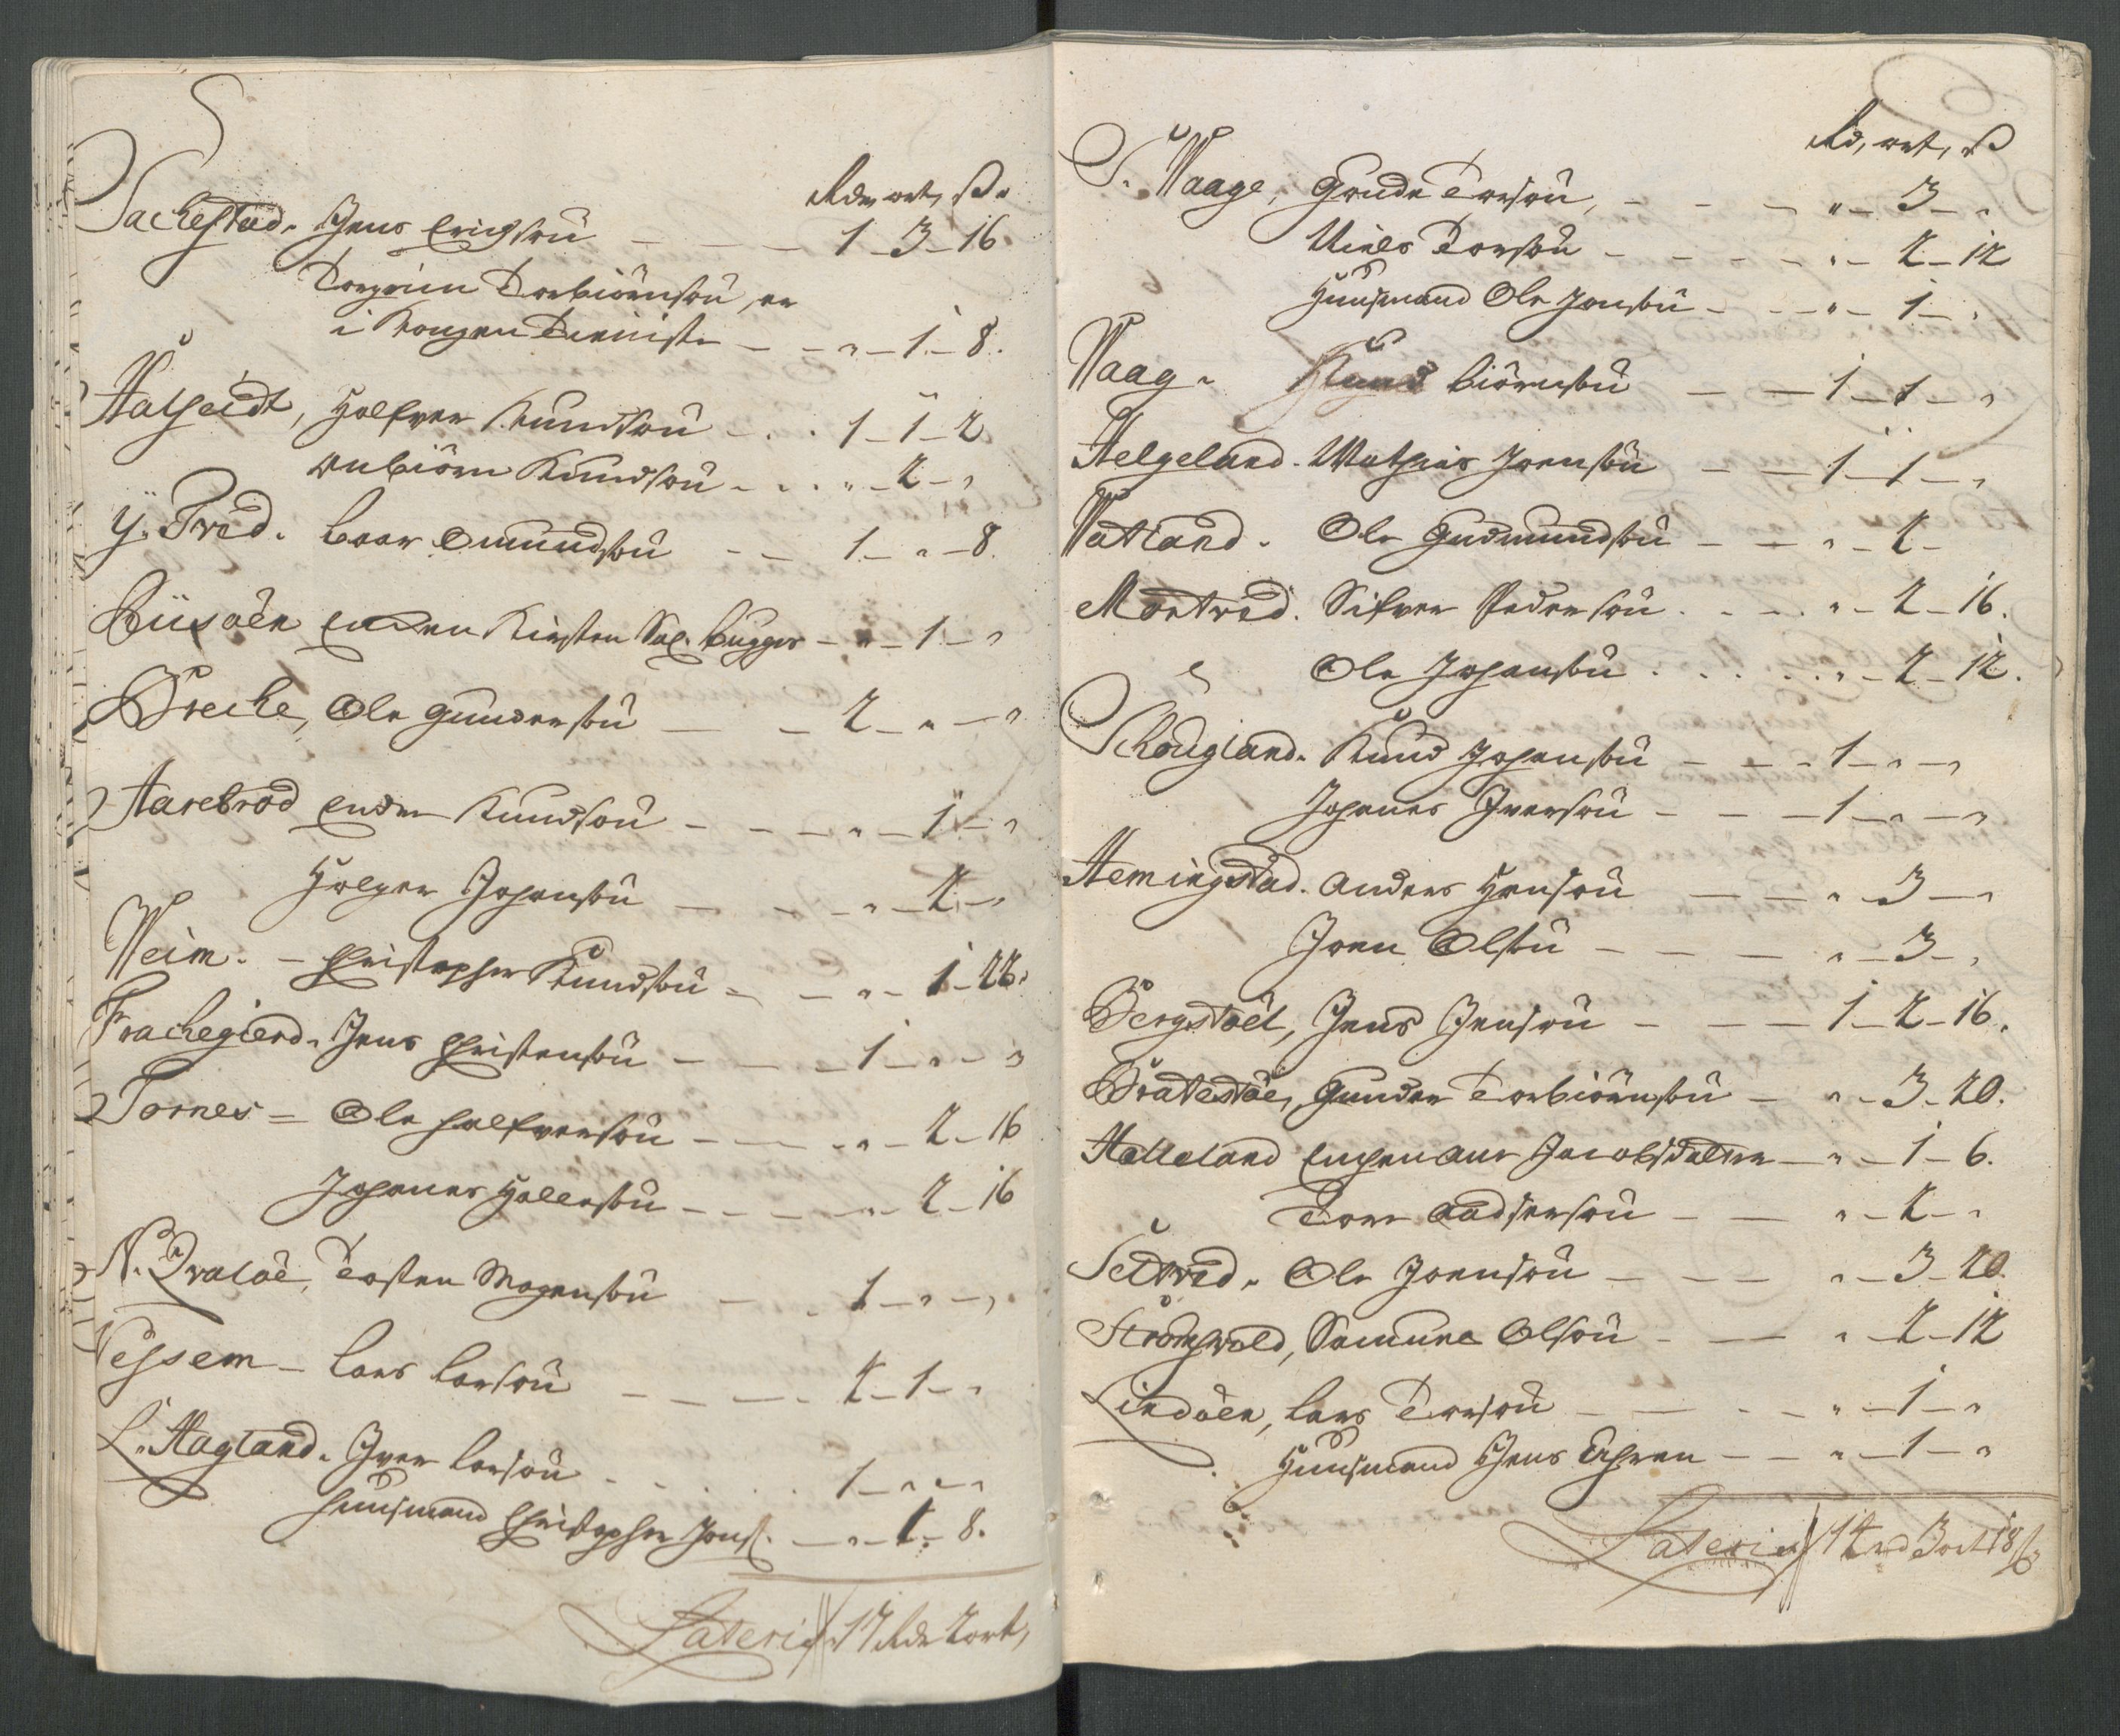 Rdr ort, ß
Sachestad. Jens Erichsøn — — — 1–3–16
Torgrim Torbiørnsøn, er
i Kongen Tienniste — — „–1–8.
Hatseidt, Halfver Knudsøn – . . 1–1–2
Anbiørn Knudsøn . . . „–2–„
Y. Tved. Baar Omundsøn – – 1–„–8.
Buusøen Enken Kirsten Sal. Bugges – „–1–„
Breche, Ole Gundersøn — – 2–„–„
Harebrod Endre Knudsøn – – – „–1–„
Holger Johansøn — – „–2–„
Weim. – Christopher Knudsøn – – „–1–22.
Frachegierd. Jens Christensøn – – 1–„–„
Tornes – Ole Halfversøn – – „–2–16
Johanes Hallersøn – – – „–2–16
N. Qvaløe, Tosten Mogensøn – . 1–„–„
Vessem – Lars Larsøn – – – 2–1–„
L. Hagland. Iver Larsøn . . . 1–„–„
Huusmand Christopher Jons. – „–1–8.
Lateris 17 Rdr 2 ort,
Rd, ort, ß
S. Waage, Grude Torsøn, – – – „–3–„
Niels Torsøn – – – – „–2–12
Huusmand Ole Jonsøn – – „–1–„
Waag. Knud Biørnsøn – – 1–1–„
Helgeland. Mathias Joensøn – – 1–1–„
Watland. Ole Gudmundsøn – – „–2–
Mortved. Sifver Pedersøn . – . „–2–16.
Ole Johansøn . . . . „–2–12.
Schougland. Knud Johansøn – – – 1–„–„
Johanes Iversøn – – – 1–„–„
Hemingstad. Anders Hansøn – – „–3–„
Joen Olsøn – – – „–3–„
Bergstøel, Jens Jensøn – – – 1–2–16.
Bratestøe, Gunder Torbiørnsøn – „–3–20.
Halleland Enchen Ane Jacobsdatter – „–1–6.
Tore Aadsersøn – – „–2–„
Setved. Ole Joensøn – – – „–3–20.
Strømswold, Samuel Olsøn – – „–2–12
Lindøen, Lars Torsøn – – – – „–1–„
Huusmand Hans Ahren – – „–1–„
Lateris 14 rd 3 ort 18 ß